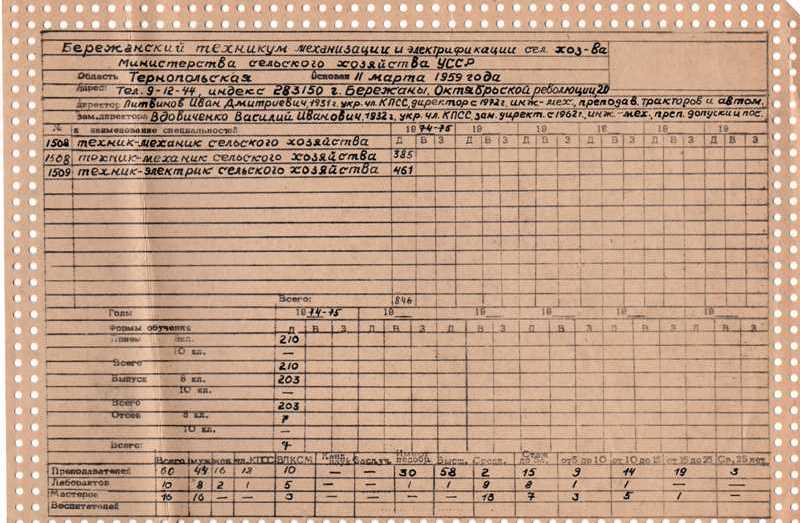 Бережанский техникум механизации и электрификации сел. хоз-ва
Министерства сельского хозяйства УССР
Область Тернопольская Основан 11 марта 1959 года
Адрес: Тел. 9-12-44, индекс 283150 г. Бережаны, Октябрьской революции 20
Директор Литвинов Иван Дмитриевич, 1931 г. укр. чл. КПСС, директор с 1972 г. инж-мех., преподав. тракторов и автом.
зам. директора Вдовиченко Василий Иванович, 1932 г., укр. чл. КПСС, зам. директ. с 1962 г., инж.-мех., преп. допуски и пос.
№ и наименование специальностей 1974-75 19 19 19 19
Д В З Д В З Д В З Д В З Д В З
1508 техник-механик сельского хозяйства
1508 техник-механик сельского хозяйства 385
1509 техник-электрик сельского хозяйства 461
Всего: 846
Годы 1974-75 19 19 19 19 19
Формы обучения Д В З Д В З Д В З Д В З Д В З Д В З
8кл. 210
10 кл. —
Всего 210
Выпуск 8 кл. 203
10 кл. —
Всего 203
Отсев 8 кл. 7
10 кл. —
Всего: 7
Всего муж чл. КПСС ВЛКСМ Канд. наук Заслуч. Высш. Средн. Стаж от 5 до 10 от 10 до 15 от 15 до 25 Св. 25 лет
Преподавателей 60 44 16 18 10 — — 30 58 2 15 9 14 19 3
Лаборантов 10 8 2 1 5 — — 1 1 9 8 1 1 — —
Мастеров 16 16 — — 3 — — — — 16 7 3 5 1 —
Воспитателей